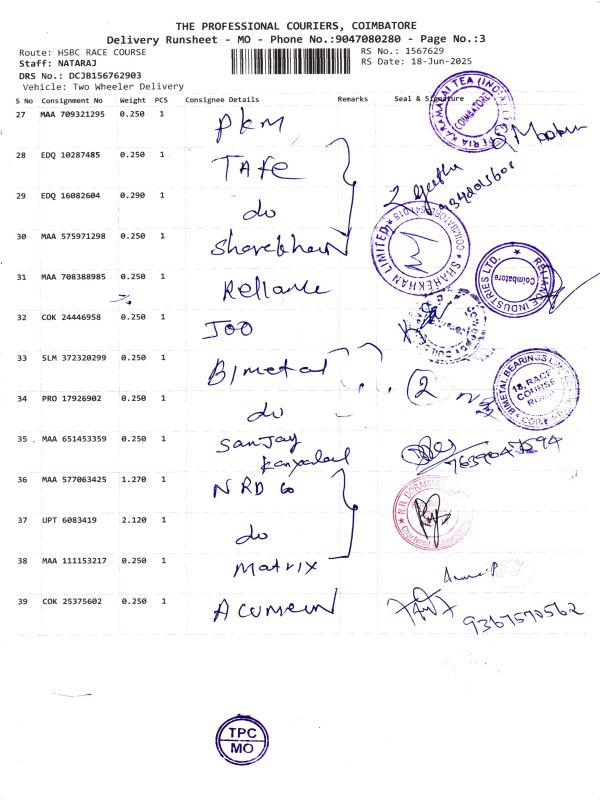 THE PROFESSIONAL COURIERS, COIMBATORE
Delivery Runsheet - MO - Phone No.:9047080280 - Page No.:3
Route: HSBC RACE COURSE RS No.: 1567629
Staff: NATARAJ RS Date: 18-Jun-2025
DRS No.: DCJB156762903
Vehicle: Two Wheeler Delivery
S No Consignment No Weight PCS Consignee Details Remarks Seal & Signature
27 MAA 709321295 0.250 1 PKM
28 EDQ 10287485 0.250 1 TAFE
29 EDQ 16082604 0.290 1 do
30 MAA 575971298 0.250 1 Sharekhan
SHAREKHAN LIMITED
31 MAA 708388985 0.250 1 Reliance
RELIANCE INDUSTRIES LTD.
Coimbatore
32 COK 24446958 0.250 1 JOO
33 SLM 372320299 0.250 1 Bimetal
BIMETAL BEARINGS LIMITED
18, RACE
COURSE
ROAD
34 PRO 17926902 0.250 1 do 2
35 MAA 651453359 0.250 1 Sanjay
36 MAA 577063425 1.270 1 NRD Co
37 UPT 6083419 2.120 1 do
38 MAA 111153217 0.250 1 Matrix
39 COK 25375602 0.250 1 Acumen
9367570562
TPC
MO